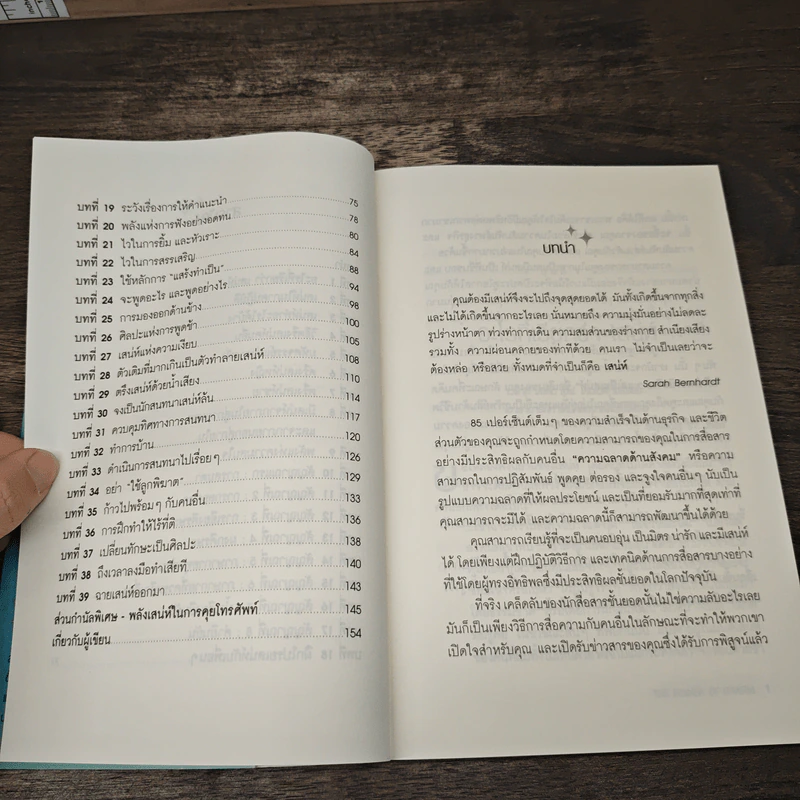 บทที่ 19 ระวังเรื่องการให้คำแนะนำ 75
บทที่ 20 พลังแห่งการฟังอย่างอดทน 78
บทที่ 21 ไวในการยิ้ม และหัวเราะ 80
บทที่ 22 ไวในการสรรเสริญ 84
บทที่ 23 ใช้หลักการ "แสร้งทำเป็น" 88
บทที่ 24 จะพูดอะไร และพูดอย่างไร 94
บทที่ 25 การมองออกด้านข้าง 98
บทที่ 26 ศิลปะแห่งการพูดช้า 100
บทที่ 27 เสน่ห์แห่งความเงียบ 105
บทที่ 28 ตัวเติมที่มากเกินเป็นตัวทำลายเสน่ห์ 108
บทที่ 29 ตรึงเสน่ห์ด้วยน้ำเสียง 110
บทที่ 30 จงเป็นนักสนทนาเสน่ห์ล้น 114
บทที่ 31 ควบคุมทิศทางการสนทนา 117
บทที่ 32 ทำการบ้าน 120
บทที่ 33 ดำเนินการสนทนาไปเรื่อยๆ 126
บทที่ 34 อย่า "ใช้ลูกพิฆาต" 129
บทที่ 35 ก้าวไปพร้อมๆ กับคนอื่น 133
บทที่ 36 การฝึกทำให้ไร้ที่ติ 136
บทที่ 37 เปลี่ยนทักษะเป็นศิลปะ 138
บทที่ 38 ถึงเวลาลงมือทำเสียที 140
บทที่ 39 ฉายเสน่ห์ออกมา 143
ส่วนกำนัลพิเศษ - พลังเสน่ห์ในการคุยโทรศัพท์ 145
เกี่ยวกับผู้เขียน 154
บทนำ
คุณต้องมีเสน่ห์จึงจะไปถึงจุดสุดยอดได้ มันทั้งเกิดขึ้นจากทุกสิ่ง
และไม่ได้เกิดขึ้นจากอะไรเลย นั่นหมายถึง ความมุ่งมั่นอย่างไม่ลดละ
รูปร่างหน้าตา ท่วงท่าการเดิน ความสมส่วนของร่างกาย สำเนียงเสียง
รวมทั้ง ความผ่อนคลายของท่าทีด้วย คนเรา ไม่จำเป็นเลยว่าจะ
ต้องหล่อ หรือสวย ทั้งหมดที่จำเป็นก็คือ เสน่ห์
Sarah Bernhardt
85 เปอร์เซ็นต์เต็มๆ ของความสำเร็จในด้านธุรกิจ และชีวิต
ส่วนตัวของคุณจะถูกกำหนดโดยความสามารถของคุณในการสื่อสาร
อย่างมีประสิทธิผลกับคนอื่น "ความฉลาดด้านสังคม" หรือความ
สามารถในการปฏิสัมพันธ์ พูดคุย ต่อรอง และจูงใจคนอื่นๆ นับเป็น
รูปแบบความฉลาดที่ให้ผลประโยชน์ และเป็นที่ยอมรับมากที่สุดเท่าที่
คุณสามารถจะมีได้ และความฉลาดนี้ก็สามารถพัฒนาขึ้นได้ด้วย
คุณสามารถเรียนรู้ที่จะเป็นคนอบอุ่น เป็นมิตร น่ารัก และมีเสน่ห์
ได้ โดยเพียงแต่ฝึกปฏิบัติวิธีการ และเทคนิคด้านการสื่อสารบางอย่าง
ที่ใช้โดยผู้ทรงอิทธิพลซึ่งมีประสิทธิผลชั้นยอดในโลกปัจจุบัน
ที่จริง เคล็ดลับของนักสื่อสารชั้นยอดนั้นไม่ใช่ความลับอะไรเลย
มันก็เป็นเพียงวิธีการสื่อความกับคนอื่นในลักษณะที่จะทำให้พวกเขา
เปิดใจสำหรับคุณ และเปิดรับข่าวสารของคุณซึ่งได้รับการพิสูจน์แล้ว